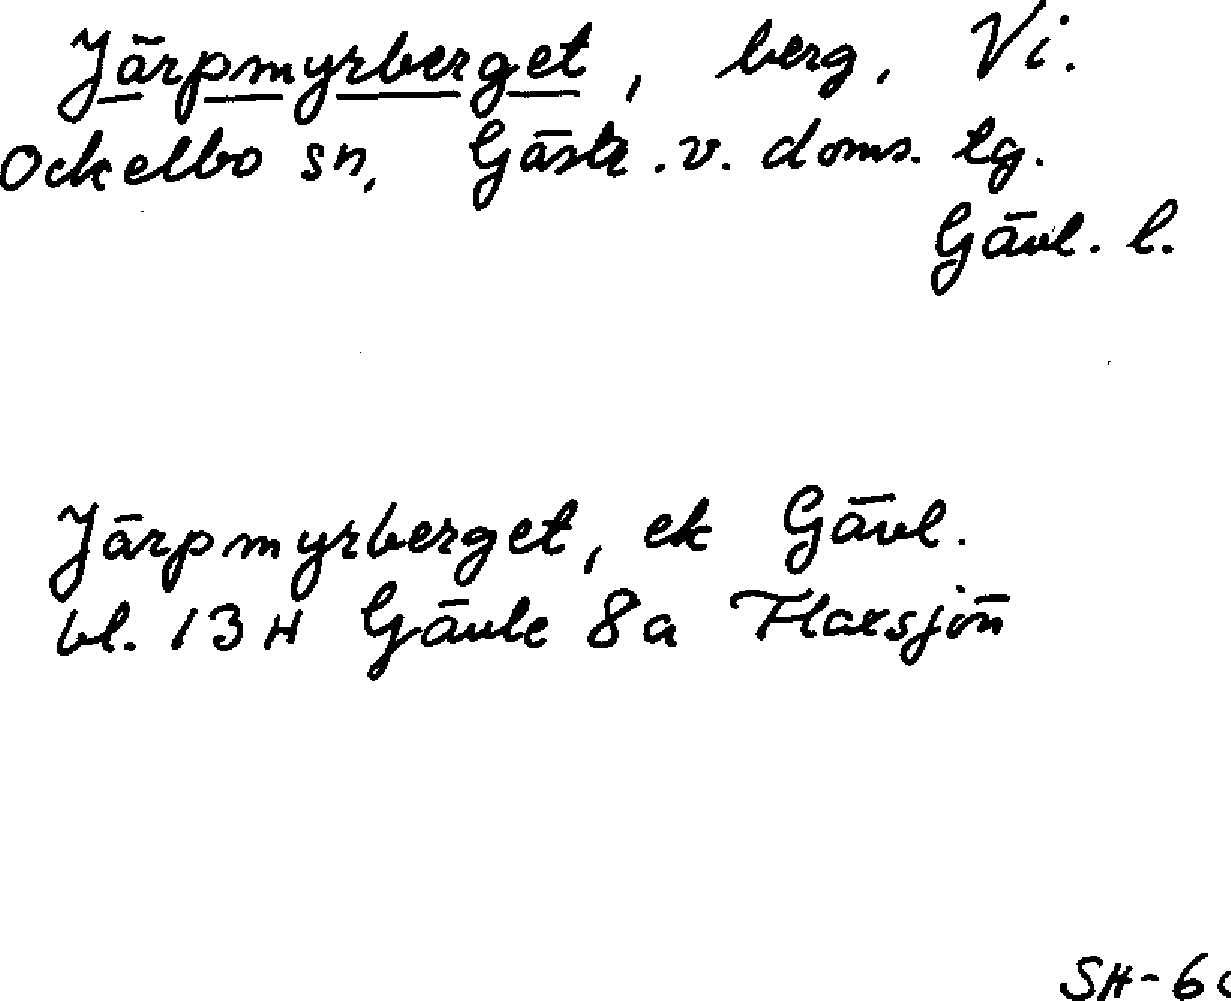 Järpmyrberget, berg, Vi.
Ockelbo sn, Gästr. v. doms. lg.
Gävl. l.
Järpmyrberget, ek Gävl.
bl. 13H Gävle 8a Flaxsjön
SH-6